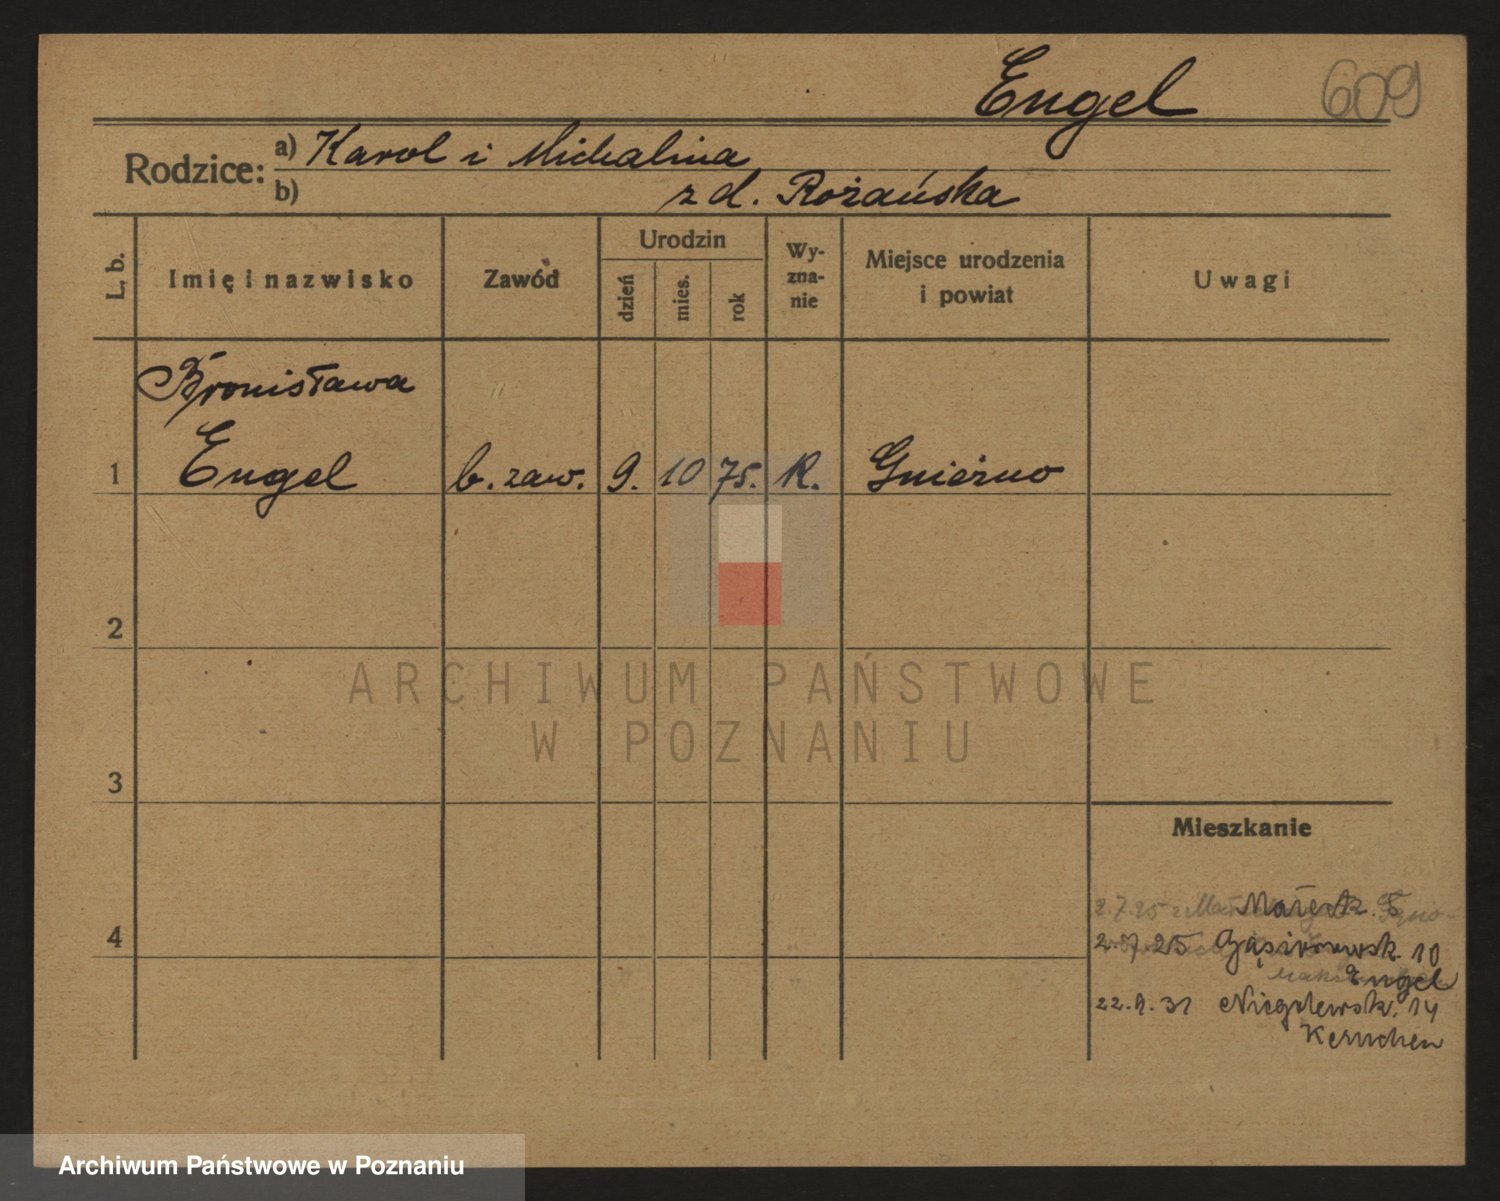 Engel 609
Rodzice: a) Karol i Michalina
b) z d. Rożańska
L. b. Imię i nazwisko Zawód Urodzin dzień mies. rok Wy-zna-nie Miejsce urodzenia i powiat Uwagi
Bronisława
1 Engel b. zaw. 9. 10 75. K. Gnieźno
2
ARCHIWUM PAŃSTWOWE
W POZNANIU
3
Mieszkanie
4
2.7.25 Gąsiorowsk. 10
Engel
22.9.31 Niegolewsk. 14
Archiwum Państwowe w Poznaniu